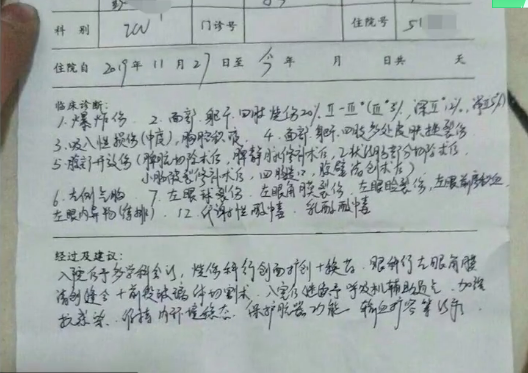 科 别 ICU 门诊号 住院号 51
住院自 2019 年 11 月 27 日至 今 年 月 日共 天
临床诊断:
1.爆炸伤 2.面部.躯干.四肢烧伤20% Ⅱ-Ⅲ°(Ⅲ°3%,深Ⅱ°12%,浅Ⅱ5%)
3.吸入性损伤(中度),胸腔积液 4.面部.躯干.四肢多处皮肤挫裂伤
5.腹部开放伤(脾脏切除术后,脾静脉修补术后,乙状结肠部分切除术后
小肠破裂修补术后,回肠造口,腹壁清创术后)
6.左侧气胸 7.左眼球裂伤.左眼角膜裂伤.左眼睑裂伤,左眼前房积血
左眼内异物(待排) 12.代谢性酸中毒.乳酸酸中毒
经过及建议:
入院后予多学科会诊,烧伤科行创面扩创+换药.眼科行左眼角膜
清创缝合+前段玻璃体切割术.入室后继续予呼吸机辅助通气.加强
抗感染.维持内环境稳态.保护脏器功能.输血扩容等治疗